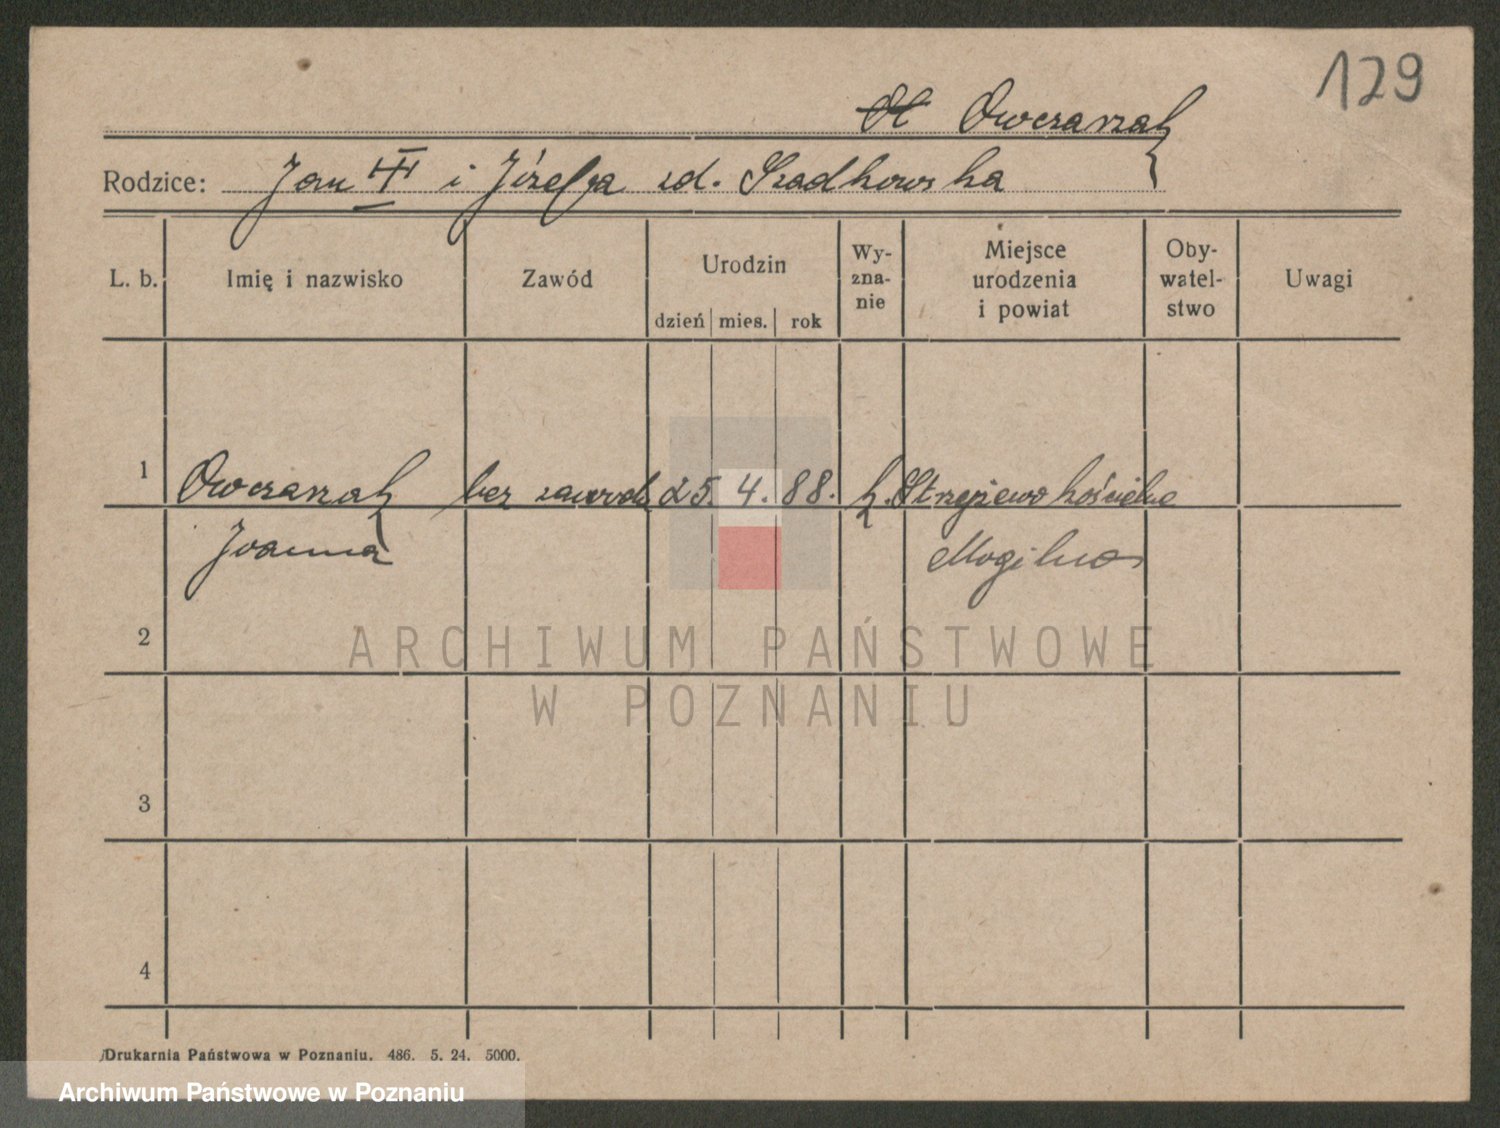 129
Owczarzak
Rodzice: Jan III i Józefa zd. Szadkowska
L. b.
Imię i nazwisko
Zawód
Urodzin
dzień mies. rok
Wy-
zna-
nie
Miejsce
urodzenia
i powiat
Oby-
watel-
stwo
Uwagi
1 Owczarzak bez zawodu 25. 4. 88. k. Strzyżewo kościelne
Joanna Mogilno
2
3
4
Drukarnia Państwowa w Poznaniu. 486. 5. 24. 5000.
ARCHIWUM PAŃSTWOWE
W POZNANIU
Archiwum Państwowe w Poznaniu